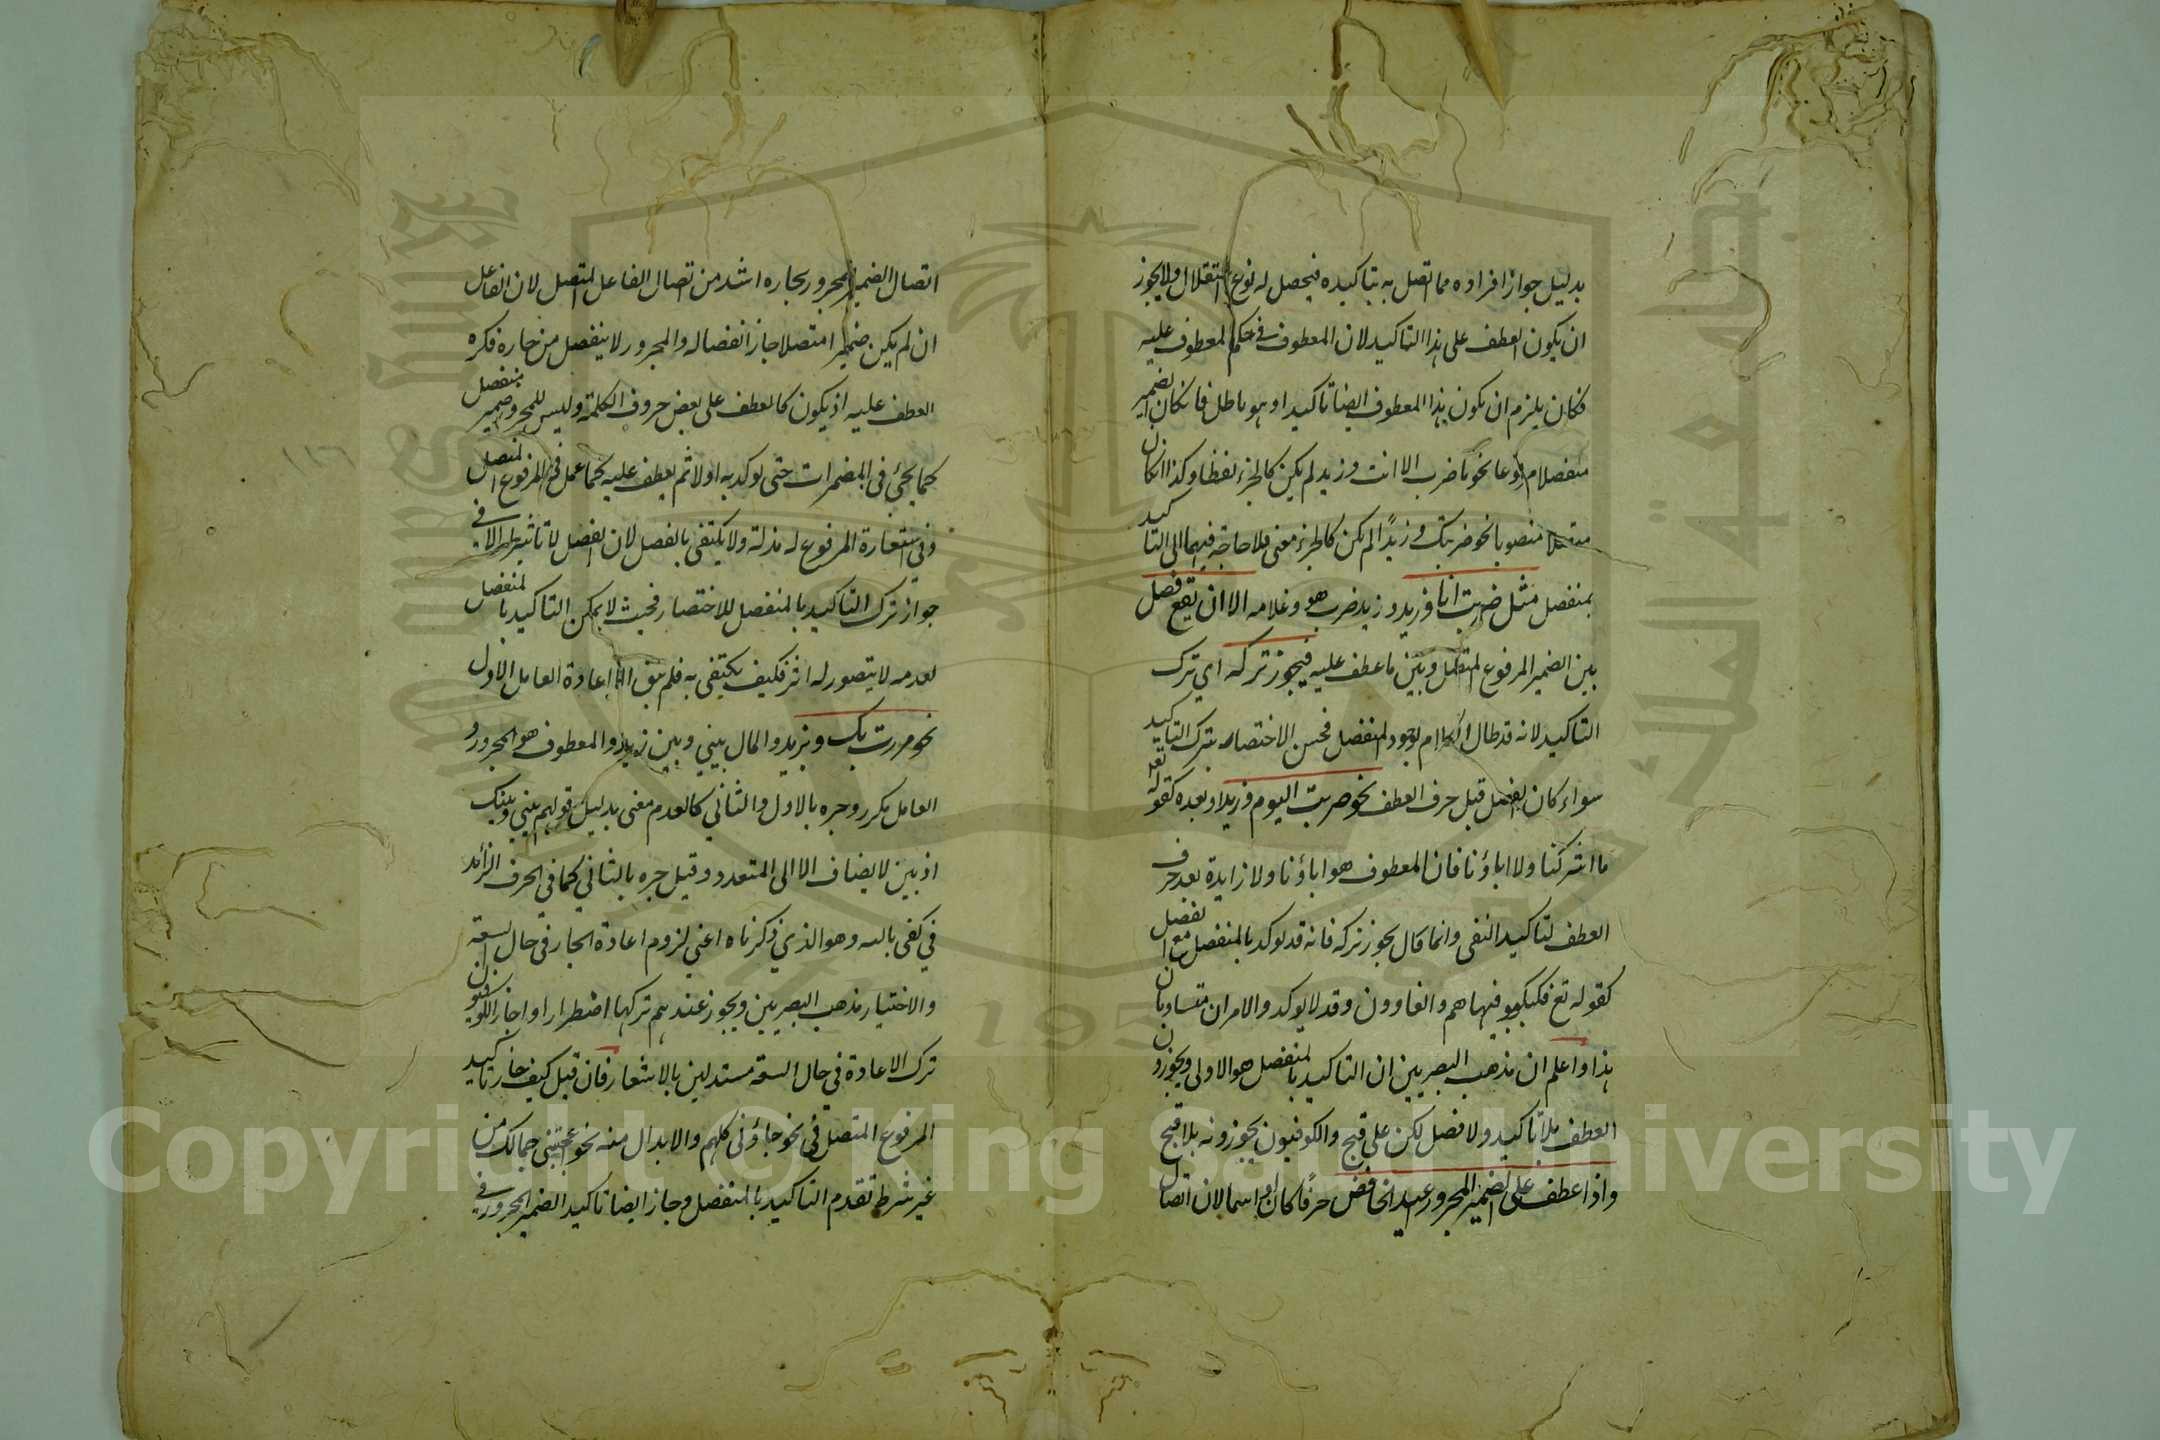 بدليل جواز افراده مما اتصل به بتاكيده فيحصل له نوع استقلال ولا يجوز
ان يكون العطف على هذا التاكيد لان المعطوف في حكم المعطوف عليه
فكان يلزم ان يكون هذا المعطوف ايضا تاكيدا وهو باطل فان كان الضمير
منفصلا مرفوعا نحو ما ضرب الا انت وزيد لم يكن كالجزء لفظا وكذا ان كان
متصلا منصوبا نحو ضربتك وزيدًا لم يكن كالجزء معنى فلا حاجة فيهما الى التاكيد
بمنفصل مثل ضربت انا وزيد وزيد ضرب هو وغلامه الا ان يقع فصل
بين الضمير المرفوع المتصل وبين ما عطف عليه فيجوز تركه اي ترك
التاكيد لانه قد طال الكلام بوجود المنفصل فحسن الاختصار بترك التاكيد
سواء كان الفصل قبل حرف العطف نحو ضربت اليوم وزيد او بعده كقوله تعه
ما اشركنا ولا اباؤنا فان المعطوف هو اباؤنا ولا زايدة بعد حرف
العطف لتاكيد النفى وانما قال يجوز تركه فانه قد يوكد بالمنفصل مع الفصل
كقوله تع فكبكبوا فيها هم والغاوون وقد لا يوكد والامران متساويان
هذا واعلم ان مذهب البصريين ان التاكيد بالمنفصل هو الاولى ويجوزون
العطف بلا تاكيد ولا فصل لكن على قبح والكوفيون يجوزونه بلا قبح
واذا عطف على الضمير المجرور اعيد الخافض حرفًا كان او اسما لان اتصال
اتصال الضمير المجرور بجاره اشد من اتصال الفاعل المتصل لان الفاعل
ان لم يكن ضميرا متصلا جاز انفصاله والمجرور لا ينفصل من جاره فكره
العطف عليه اذ يكون كالعطف على بعض حروف الكلمة وليس للمجرور ضمير منفصل
كما يجئ في المضمرات حتى يوكد به اولا ثم يعطف عليه كما عمل في المرفوع المتصل
وفي استعارة المرفوع له مذلة ولا يكتفى بالفصل لان الفصل لا تاثير له الا في
جواز ترك التاكيد بالمنفصل للاختصار فحيث لا يمكن التاكيد بالمنفصل
لعدمه لا يتصور له اثر فكيف يكتفى به فلم يبق الا اعادة العامل الاول
نحو مررت بك وبزيد والمال بيني وبين زيد والمعطوف هو المجرور و
العامل مكرر وجره بالاول والثاني كالعدم معنى بدليل قولهم بيني وبينك
اذ بين لا يضاف الا الى المتعدد وقيل جره بالثاني كما في الحرف الزائد
في كفى بالله وهو الذي ذكرناه اعني لزوم اعادة الجار في حال السعة
والاختيار مذهب البصريين ويجوز عندهم تركها اضطرارا واجاز الكوفيون
ترك الاعادة في حال السعة مستدلين بالاشعار فان قيل كيف جاز تاكيد
المرفوع المتصل في نحو جاؤني كلهم والابدال منه نحو اعجبتني جمالك من
غير شرط تقدم التاكيد بالمنفصل وجاز ايضا تاكيد الضمير المجرور في
Copyright © King Saud University
1957